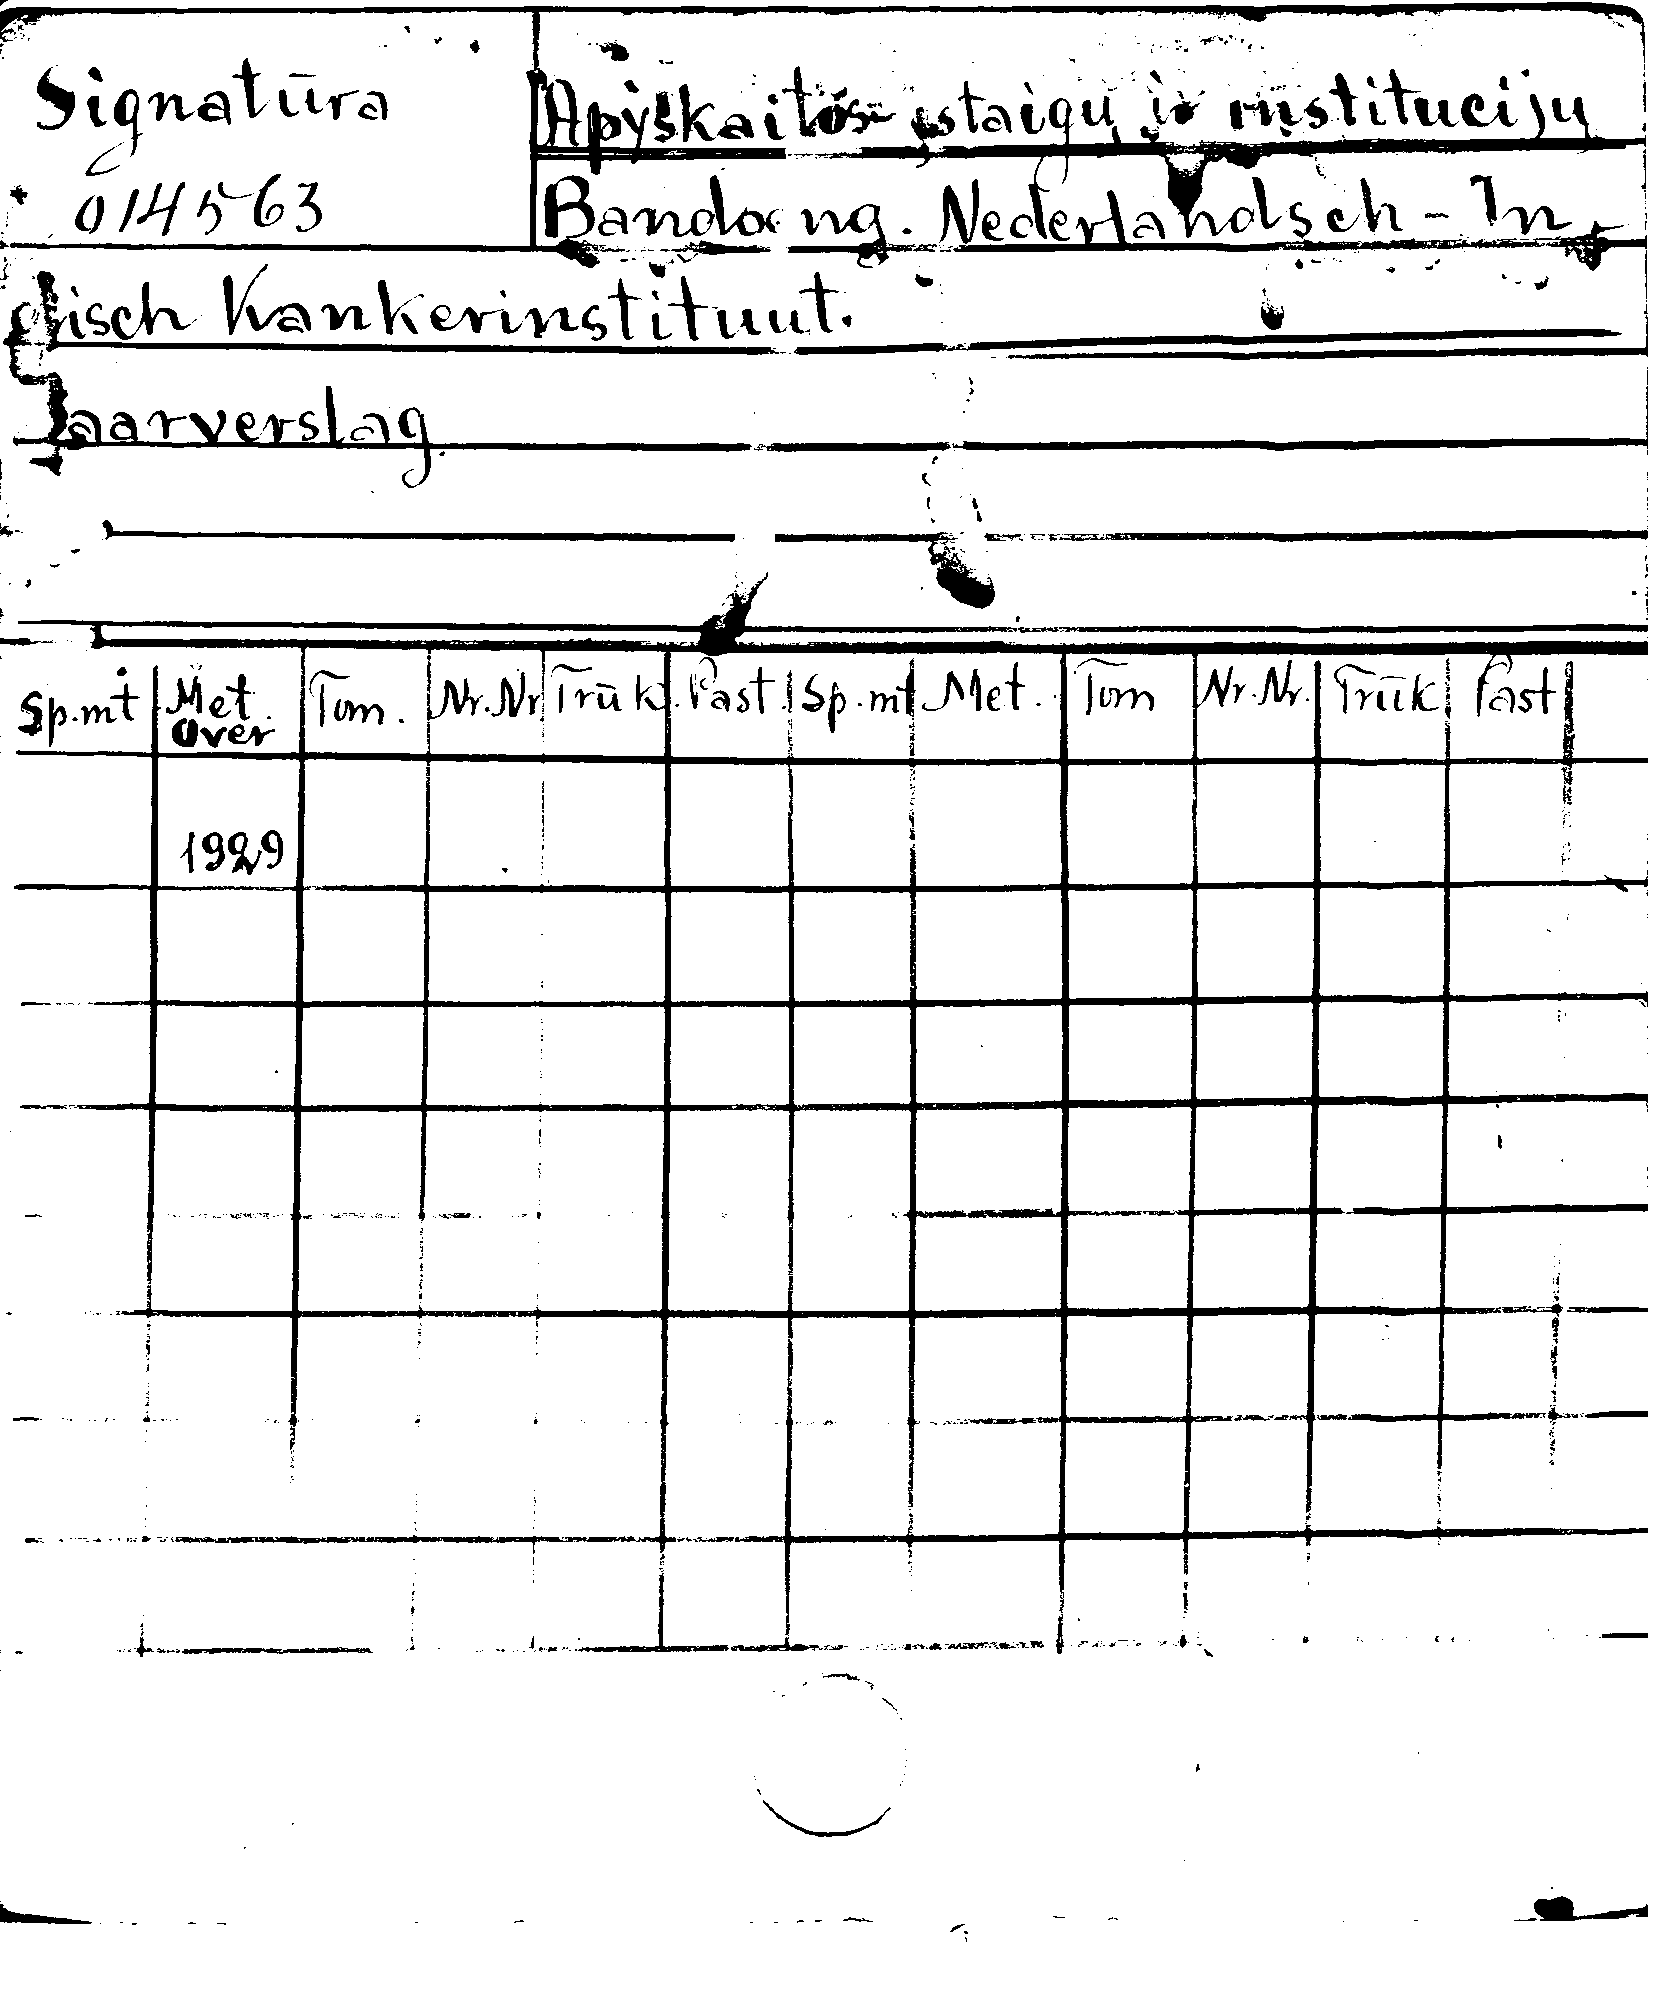 Signatūra
Apyškaitos įstaigų ir institucijų
014563
Bandoeng. Nederlandsch - In
disch Kankerinstituut.
Jaarverslag
Sp.mt Met. Tom. Nr.Nr Trūk. Past. Sp.mt Met. Tom Nr.Nr. Trūk Past
over
1929